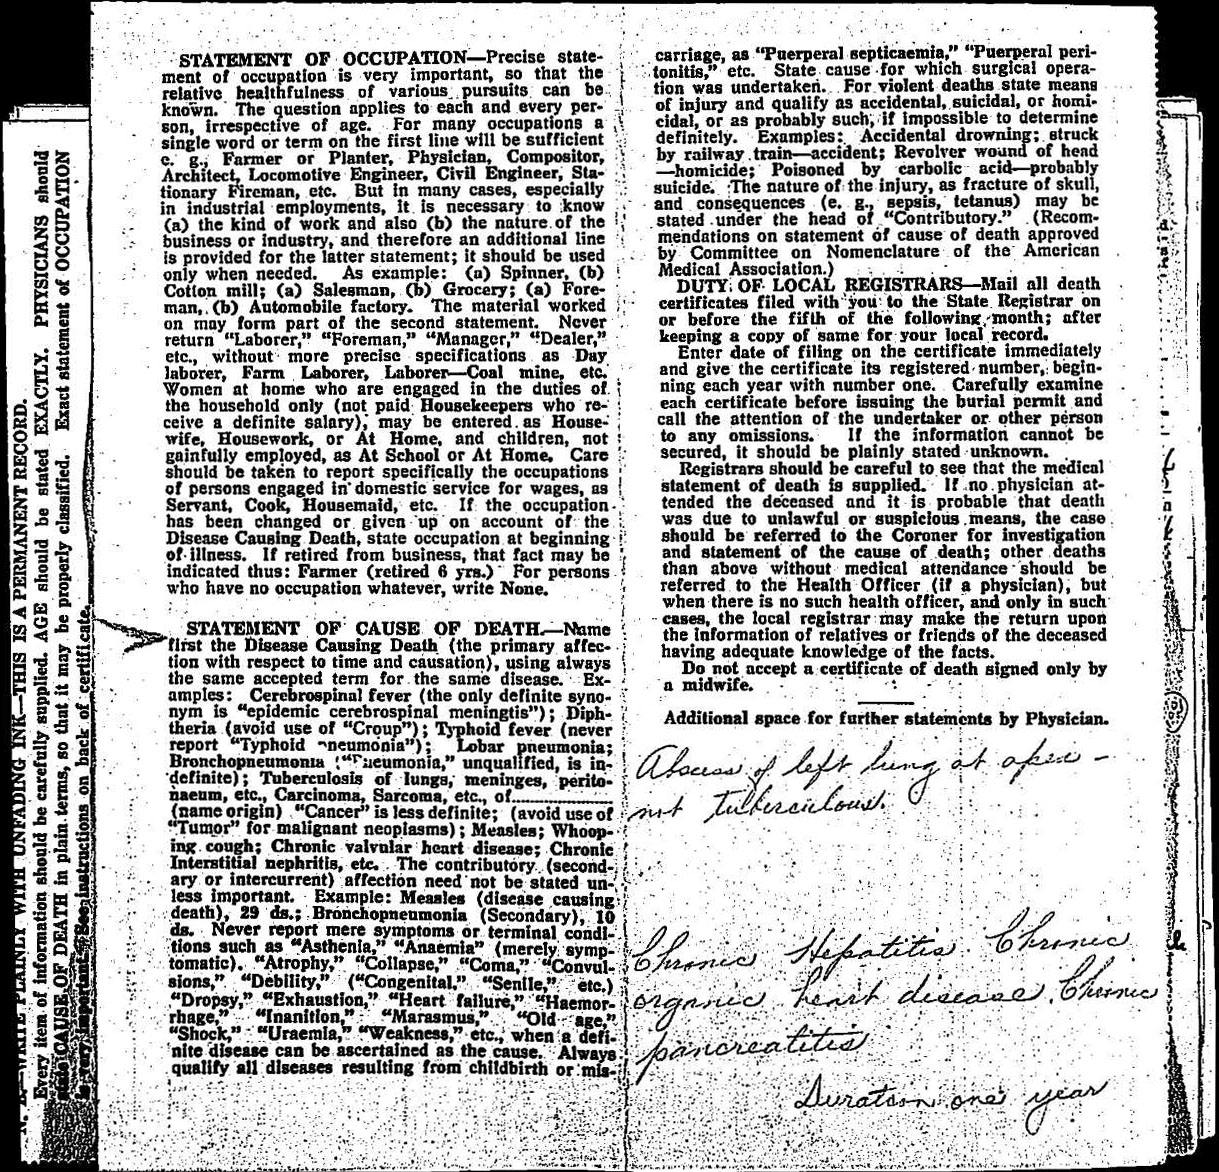 N. B.—WRITE PLAINLY WITH UNFADING INK—THIS IS A PERMANENT RECORD.
Every item of information should be carefully supplied. AGE should be stated EXACTLY. PHYSICIANS should
state CAUSE OF DEATH in plain terms, so that it may be properly classified. Exact statement of OCCUPATION
is very important. See instructions on back of certificate.
STATEMENT OF OCCUPATION—Precise state-
ment of occupation is very important, so that the
relative healthfulness of various pursuits can be
known. The question applies to each and every per-
son, irrespective of age. For many occupations a
single word or term on the first line will be sufficient
e. g., Farmer or Planter, Physician, Compositor,
Architect, Locomotive Engineer, Civil Engineer, Sta-
tionary Fireman, etc. But in many cases, especially
in industrial employments, it is necessary to know
(a) the kind of work and also (b) the nature of the
business or industry, and therefore an additional line
is provided for the latter statement; it should be used
only when needed. As example: (a) Spinner, (b)
Cotton mill; (a) Salesman, (b) Grocery; (a) Fore-
man, (b) Automobile factory. The material worked
on may form part of the second statement. Never
return "Laborer," "Foreman," "Manager," "Dealer,"
etc., without more precise specifications as Day
laborer, Farm Laborer, Laborer—Coal mine, etc.
Women at home who are engaged in the duties of
the household only (not paid Housekeepers who re-
ceive a definite salary), may be entered as House-
wife, Housework, or At Home, and children, not
gainfully employed, as At School or At Home. Care
should be taken to report specifically the occupations
of persons engaged in domestic service for wages, as
Servant, Cook, Housemaid, etc. If the occupation
has been changed or given up on account of the
Disease Causing Death, state occupation at beginning
of illness. If retired from business, that fact may be
indicated thus: Farmer (retired 6 yrs.) For persons
who have no occupation whatever, write None.
STATEMENT OF CAUSE OF DEATH.—Name
first the Disease Causing Death (the primary affec-
tion with respect to time and causation), using always
the same accepted term for the same disease. Ex-
amples: Cerebrospinal fever (the only definite syno-
nym is "epidemic cerebrospinal meningtis"); Diph-
theria (avoid use of "Croup"); Typhoid fever (never
report "Typhoid pneumonia"); Lobar pneumonia;
Bronchopneumonia ("Pneumonia," unqualified, is in-
definite); Tuberculosis of lungs, meninges, perito-
naeum, etc., Carcinoma, Sarcoma, etc., of..............
(name origin) "Cancer" is less definite; (avoid use of
"Tumor" for malignant neoplasms); Measles; Whoop-
ing cough; Chronic valvular heart disease; Chronic
Interstitial nephritis, etc. The contributory (second-
ary or intercurrent) affection need not be stated un-
less important. Example: Measles (disease causing
death), 29 ds.; Bronchopneumonia (Secondary), 10
ds. Never report mere symptoms or terminal condi-
tions such as "Asthenia," "Anaemia" (merely symp-
tomatic), "Atrophy," "Collapse," "Coma," "Convul-
sions," "Debility," ("Congenital," "Senile," etc.)
"Dropsy," "Exhaustion," "Heart failure," "Haemor-
rhage," "Inanition," "Marasmus," "Old age,"
"Shock," "Uraemia," "Weakness," etc., when a defi-
nite disease can be ascertained as the cause. Always
qualify all diseases resulting from childbirth or mis-
carriage, as "Puerperal septicaemia," "Puerperal peri-
tonitis," etc. State cause for which surgical opera-
tion was undertaken. For violent deaths state means
of injury and qualify as accidental, suicidal, or homi-
cidal, or as probably such, if impossible to determine
definitely. Examples: Accidental drowning; struck
by railway train—accident; Revolver wound of head
—homicide; Poisoned by carbolic acid—probably
suicide. The nature of the injury, as fracture of skull,
and consequences (e. g., sepsis, tetanus) may be
stated under the head of "Contributory." (Recom-
mendations on statement of cause of death approved
by Committee on Nomenclature of the American
Medical Association.)
DUTY OF LOCAL REGISTRARS—Mail all death
certificates filed with you to the State Registrar on
or before the fifth of the following month; after
keeping a copy of same for your local record.
Enter date of filing on the certificate immediately
and give the certificate its registered number, begin-
ning each year with number one. Carefully examine
each certificate before issuing the burial permit and
call the attention of the undertaker or other person
to any omissions. If the information cannot be
secured, it should be plainly stated unknown.
Registrars should be careful to see that the medical
statement of death is supplied. If no physician at-
tended the deceased and it is probable that death
was due to unlawful or suspicious means, the case
should be referred to the Coroner for investigation
and statement of the cause of death; other deaths
than above without medical attendance should be
referred to the Health Officer (if a physician), but
when there is no such health officer, and only in such
cases, the local registrar may make the return upon
the information of relatives or friends of the deceased
having adequate knowledge of the facts.
Do not accept a certificate of death signed only by
a midwife.
Additional space for further statements by Physician.
Abscess of left lung at apex -
not tuberculous.
Chronic Hepatitis Chronic
organic heart disease. Chronic
pancreatitis
Duration one year